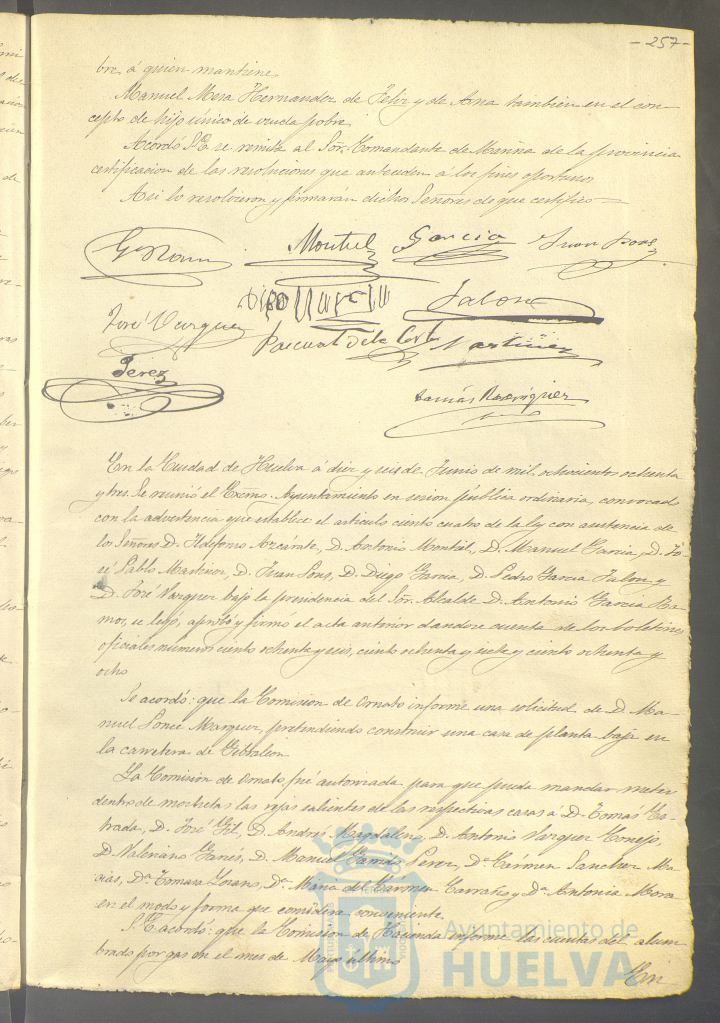 - 257 -
bre á quien mantiene.
Manuel Mora Hernandez de Felix y de Ana tambien en el con-
cepto de hijo unico de viuda pobre.
Acordó S.E. se remita al Sor. Comandante de Marina de la provincia
certificacion de las resoluciones que anteceden á los fines oportunos.
Asi lo resolvieron y firmarán dichos Señores de que certifico =
Montiel García Juan Pons
Jalon
José Vazquez Pascual de la Corte Martinez
Perez
Tomás Rodriguez
En la Ciudad de Huelva á diez y seis de Junio de mil ochocientos ochenta
y tres Se reunió el Excmo. Ayuntamiento en sesion pública ordinaria, convocado
con la advertencia que establece el articulo ciento cuatro de la ley con asistencia de
los Señores D. Ildefonso Azcárate, D. Antonio Montiel, D. Manuel Garcia, D. Jo-
sé Pablo Martinez, D. Juan Pons, D. Diego Garcia, D. Pedro Garcia Jalon y
D. José Vazquez bajo la presidencia del Sor. Alcalde D. Antonio Garcia Ra-
mos, se leyó, aprobó y firmó el acta anterior dandose cuenta de los boletines
oficiales numeros ciento ochenta y seis, ciento ochenta y siete y ciento ochenta y
ocho.
Se acordó: que la Comision de Ornato informe una solicitud de D. Ma-
nuel Ponce Marquez, pretendiendo construir una casa de planta baja en
la carretera de Gibraleon.
La Comision de Ornato fué autorizada para que pueda mandar meter
dentro de mochetas las rejas salientes de las respectivas casas á D. Tomás Es-
trada, D. José Gil, D. Andrés Magdaleno, D. Antonio Vazquez Conejo,
D. Valeriano Garcés, D. Manuel Perez, Da. Cármen Sanchez Ma-
cias, Da. Tomasa Lozano, Da. Maria del Cármen Carraño y Da. Antonia Mora
en el modo y forma que considere conveniente.
S.E. acordó: que la Comision de Hacienda informe las cuentas del alum-
brado por gas en el mes de Mayo último.
Ayuntamiento de
HUELVA